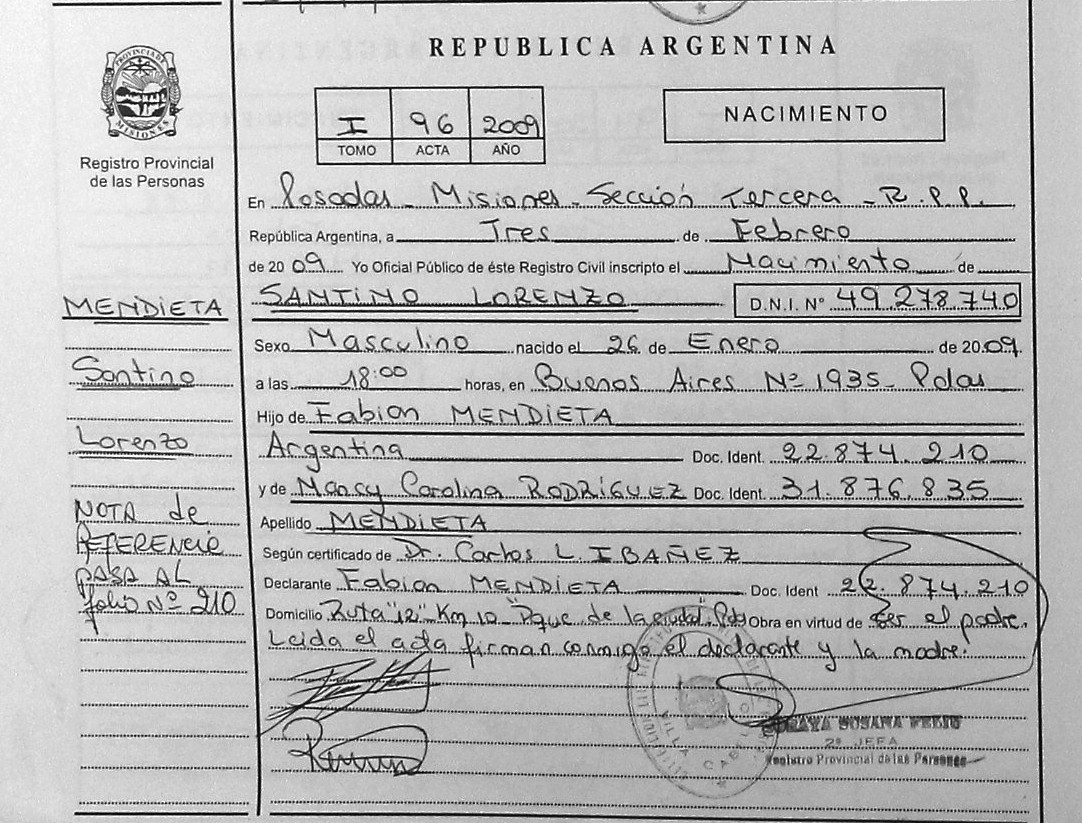 REPUBLICA ARGENTINA
PROVINCIA DE MISIONES
Registro Provincial
de las Personas
I 96 2009
TOMO ACTA AÑO
NACIMIENTO
En Posadas - Misiones - Sección Tercera - R.P.P.
República Argentina, a Tres de Febrero
de 2009 Yo Oficial Público de éste Registro Civil inscripto el Nacimiento de
SANTINO LORENZO D.N.I. Nº 49.278.740
Sexo Masculino nacido el 26 de Enero de 2009.
a las 18:00 horas, en Buenos Aires Nº 1935 - Pdas
Hijo de Fabian MENDIETA
Argentina Doc. Ident. 22.874.210
y de Nancy Carolina RODRÍGUEZ Doc. Ident. 31.876.835
Apellido MENDIETA
Según certificado de Dr. Carlos L. IBAÑEZ
Declarante Fabian MENDIETA Doc. Ident 22.874.210
Domicilio Ruta "12" Km 10 "Pque de la ciudad" Pdas Obra en virtud de ser el padre.
Leida el acta firman conmigo el declarante y la madre.
MENDIETA
Santino
Lorenzo
NOTA de
REFERENCIA
PASA AL
folio Nº 210
VILLA CABELLO
SORAYA SUSANA FELIU
2ª JEFA
Registro Provincial de las Personas